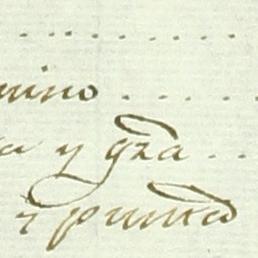 mino....
a y gra...
y punta